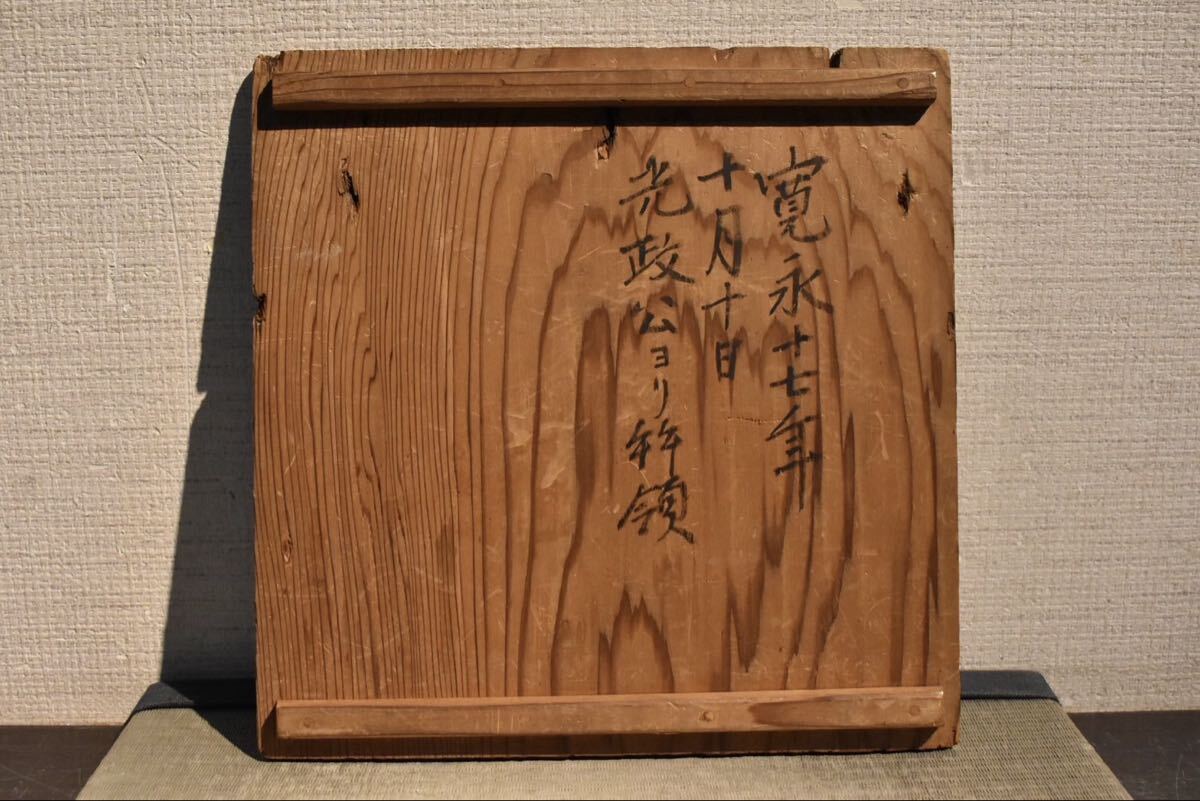 寛永十七年
十月十日
光政公ヨリ拝領